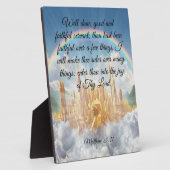 Well done, good and
faithful servant; thou hast been
faithful over a few things, I
will make thee ruler over many
things: enter thou into the joy
of Thy Lord.
Matthew 25:21